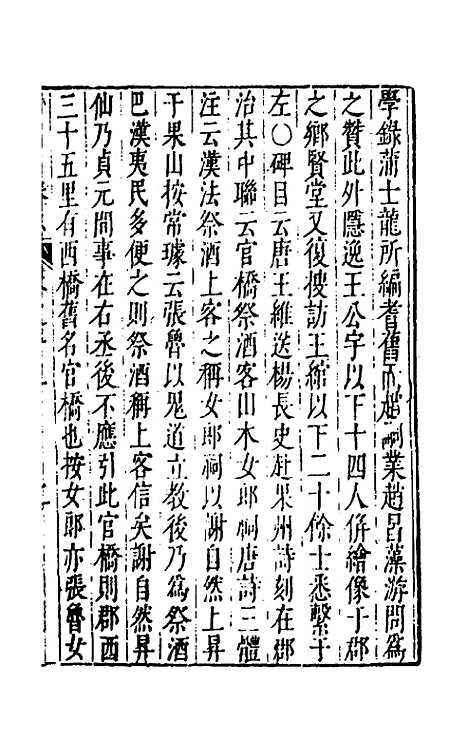 學錄蒲士龍所編耆舊而嗣業趙昌藻游問為
之贊此外隱逸王公字以下十四人併繪像于郡
之鄉賢堂又復搜訪王綰以下二十餘士悉繫于
左〇碑目云唐王維送楊長史赴果州詩刻在郡
治其中聯云官橋祭酒客山木女郎祠唐詩三體
注云漢法祭酒上客之稱女郎祠以謝自然上昇
于果山按常璩云張魯以鬼道立教後乃為祭酒
巴漢夷民多便之則祭酒稱上客信矣謝自然昇
仙乃貞元間事在右丞後不應引此官橋則郡西
三十五里有西橋舊名官橋也按女郎亦張魯女